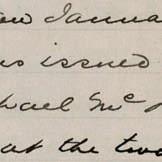 Janua
issued
hael Mc
at the two